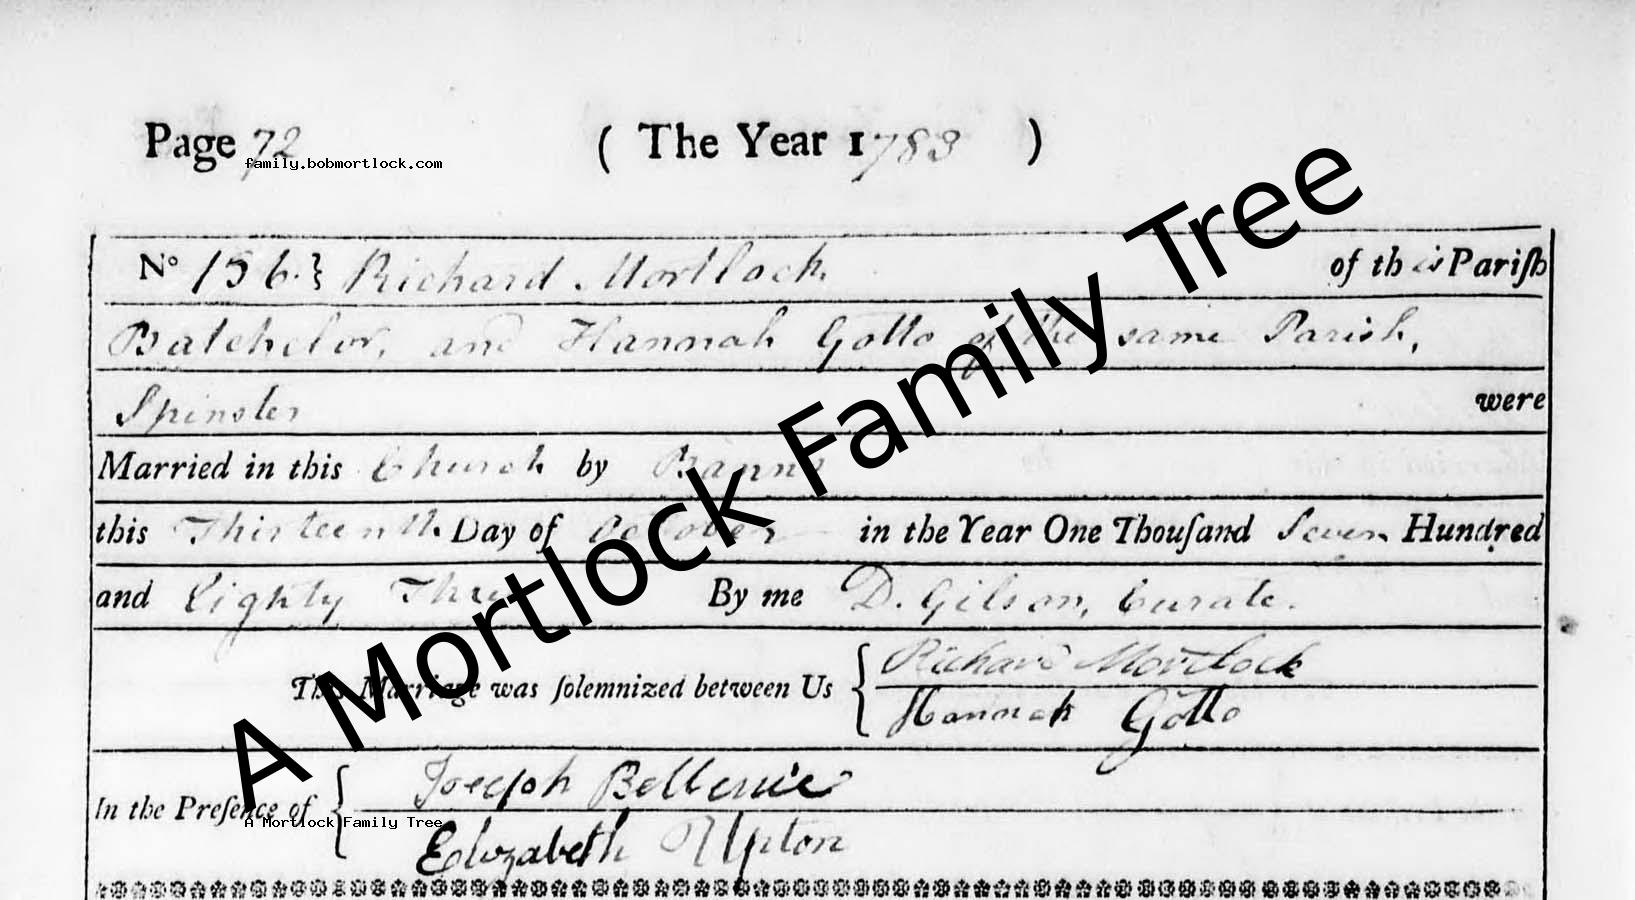 Page 72 ( The Year 1783 )
family.bobmortlock.com
No 156. } Richard Mortlock of this Pariſh
Batchelor, and Hannah Gotto of the same Parish,
Spinster were
Married in this Church by Banns
this Thirteenth Day of October in the Year One Thouſand Seven Hundred
and Eighty Three By me D. Gilson, Curate.
This Marriage was ſolemnized between Us { Richard Mortlock
Hannah Gotto
In the Preſence of { Joseph
Elizabeth Upton
A Mortlock Family Tree
A Mortlock Family Tree